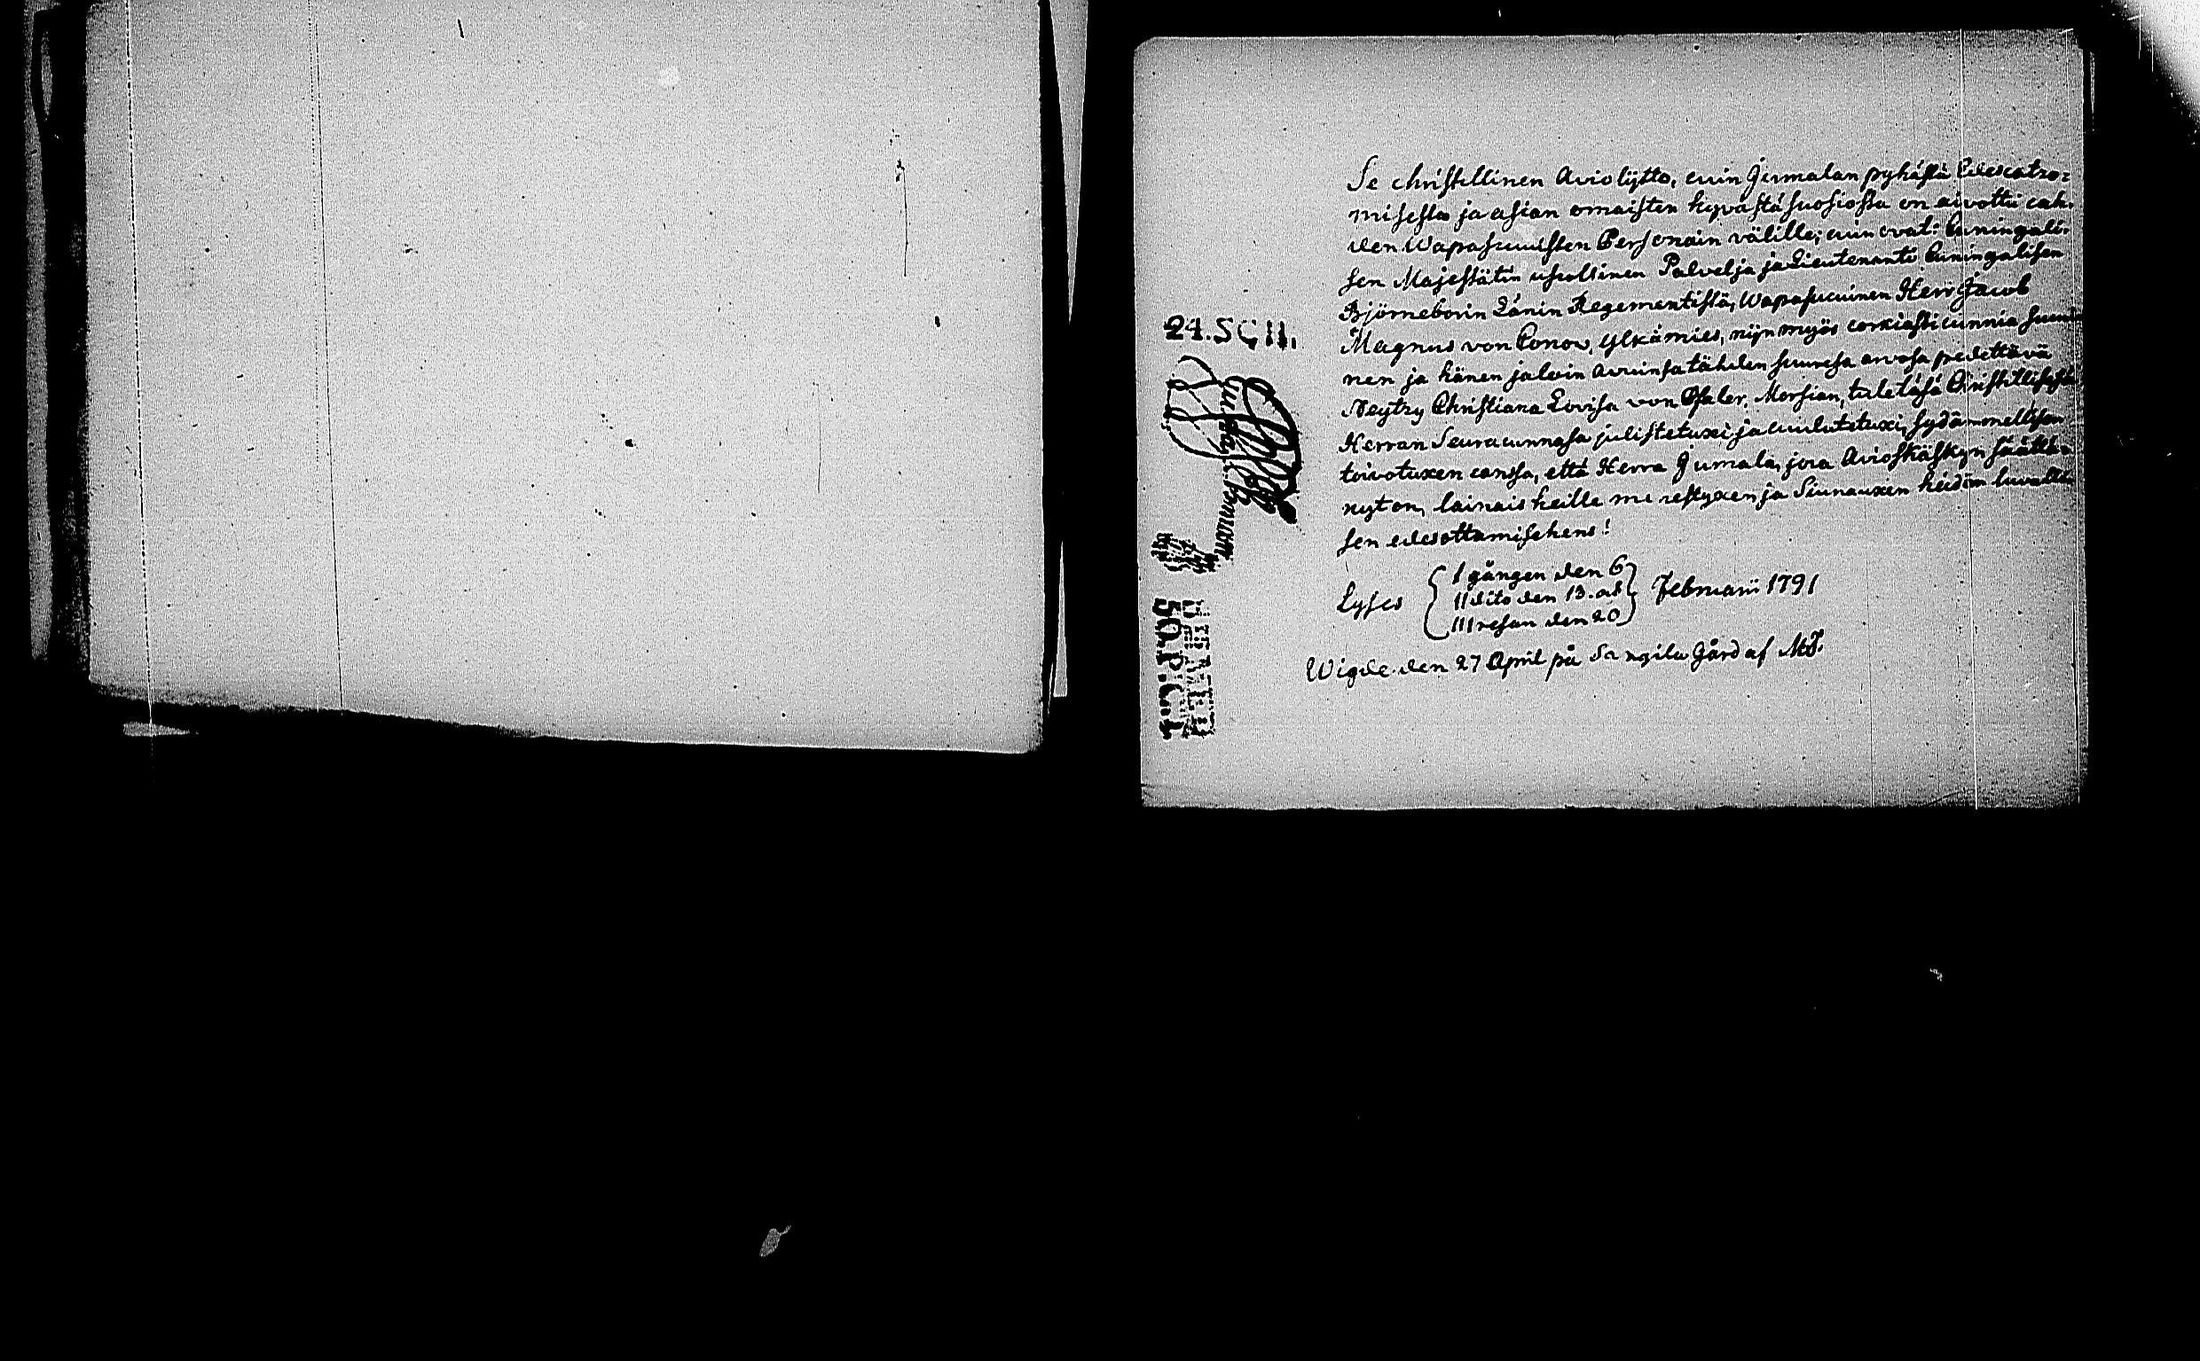 Se christillinen Avioliitto, cuin Jumalan pyhästä Edescatzo=
misesta ja asian omaisten hyvästä suosiosta on aivottu cah=
den Wapasucuisten Personain välille, cuin ovat: Cuningali=
sen Majestätin uscollinen Palvelja ja Lieutenanti Cuningalisen
Björneborin Länin Regementistä, Wapasucuinen Herr Jacob
Magnus von Conow, Ylkämies, nijn myös corkiasti cunnia
nen ja hänen jaloin Avuinsa tähden suuresa arvosa pidettävä
Neytzy Christiana Lovisa von Pfaler, Morsian, tuletasa Christillisesä
Herran Seuracunnasa julistetuxi ja cuulutetuxi, sydämmellisen
toivotuxen cansa, että Herra Jumala, joca Avioskäskyn säättä=
nyt on, lainais heille menestyxen ja Siunauxen heidän luvalli=
sen edesottamisehens!
24. SCH.
50.P:C:1
Lyses
I gången den 6
II dito den 13. och
III resan den 20
Februarii 1791
Wigde den 27 April på Sangila Gård af MT.